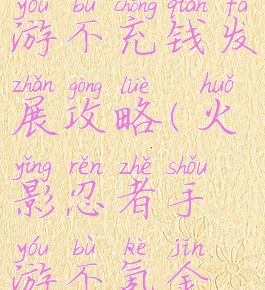 yóu bù chōng qián fā
游不充钱发
zhǎn gōng lüè huǒ
展攻略(火
yǐng rěn zhě shǒu
影忍者手
yóu bù kè jīn
游不氪金